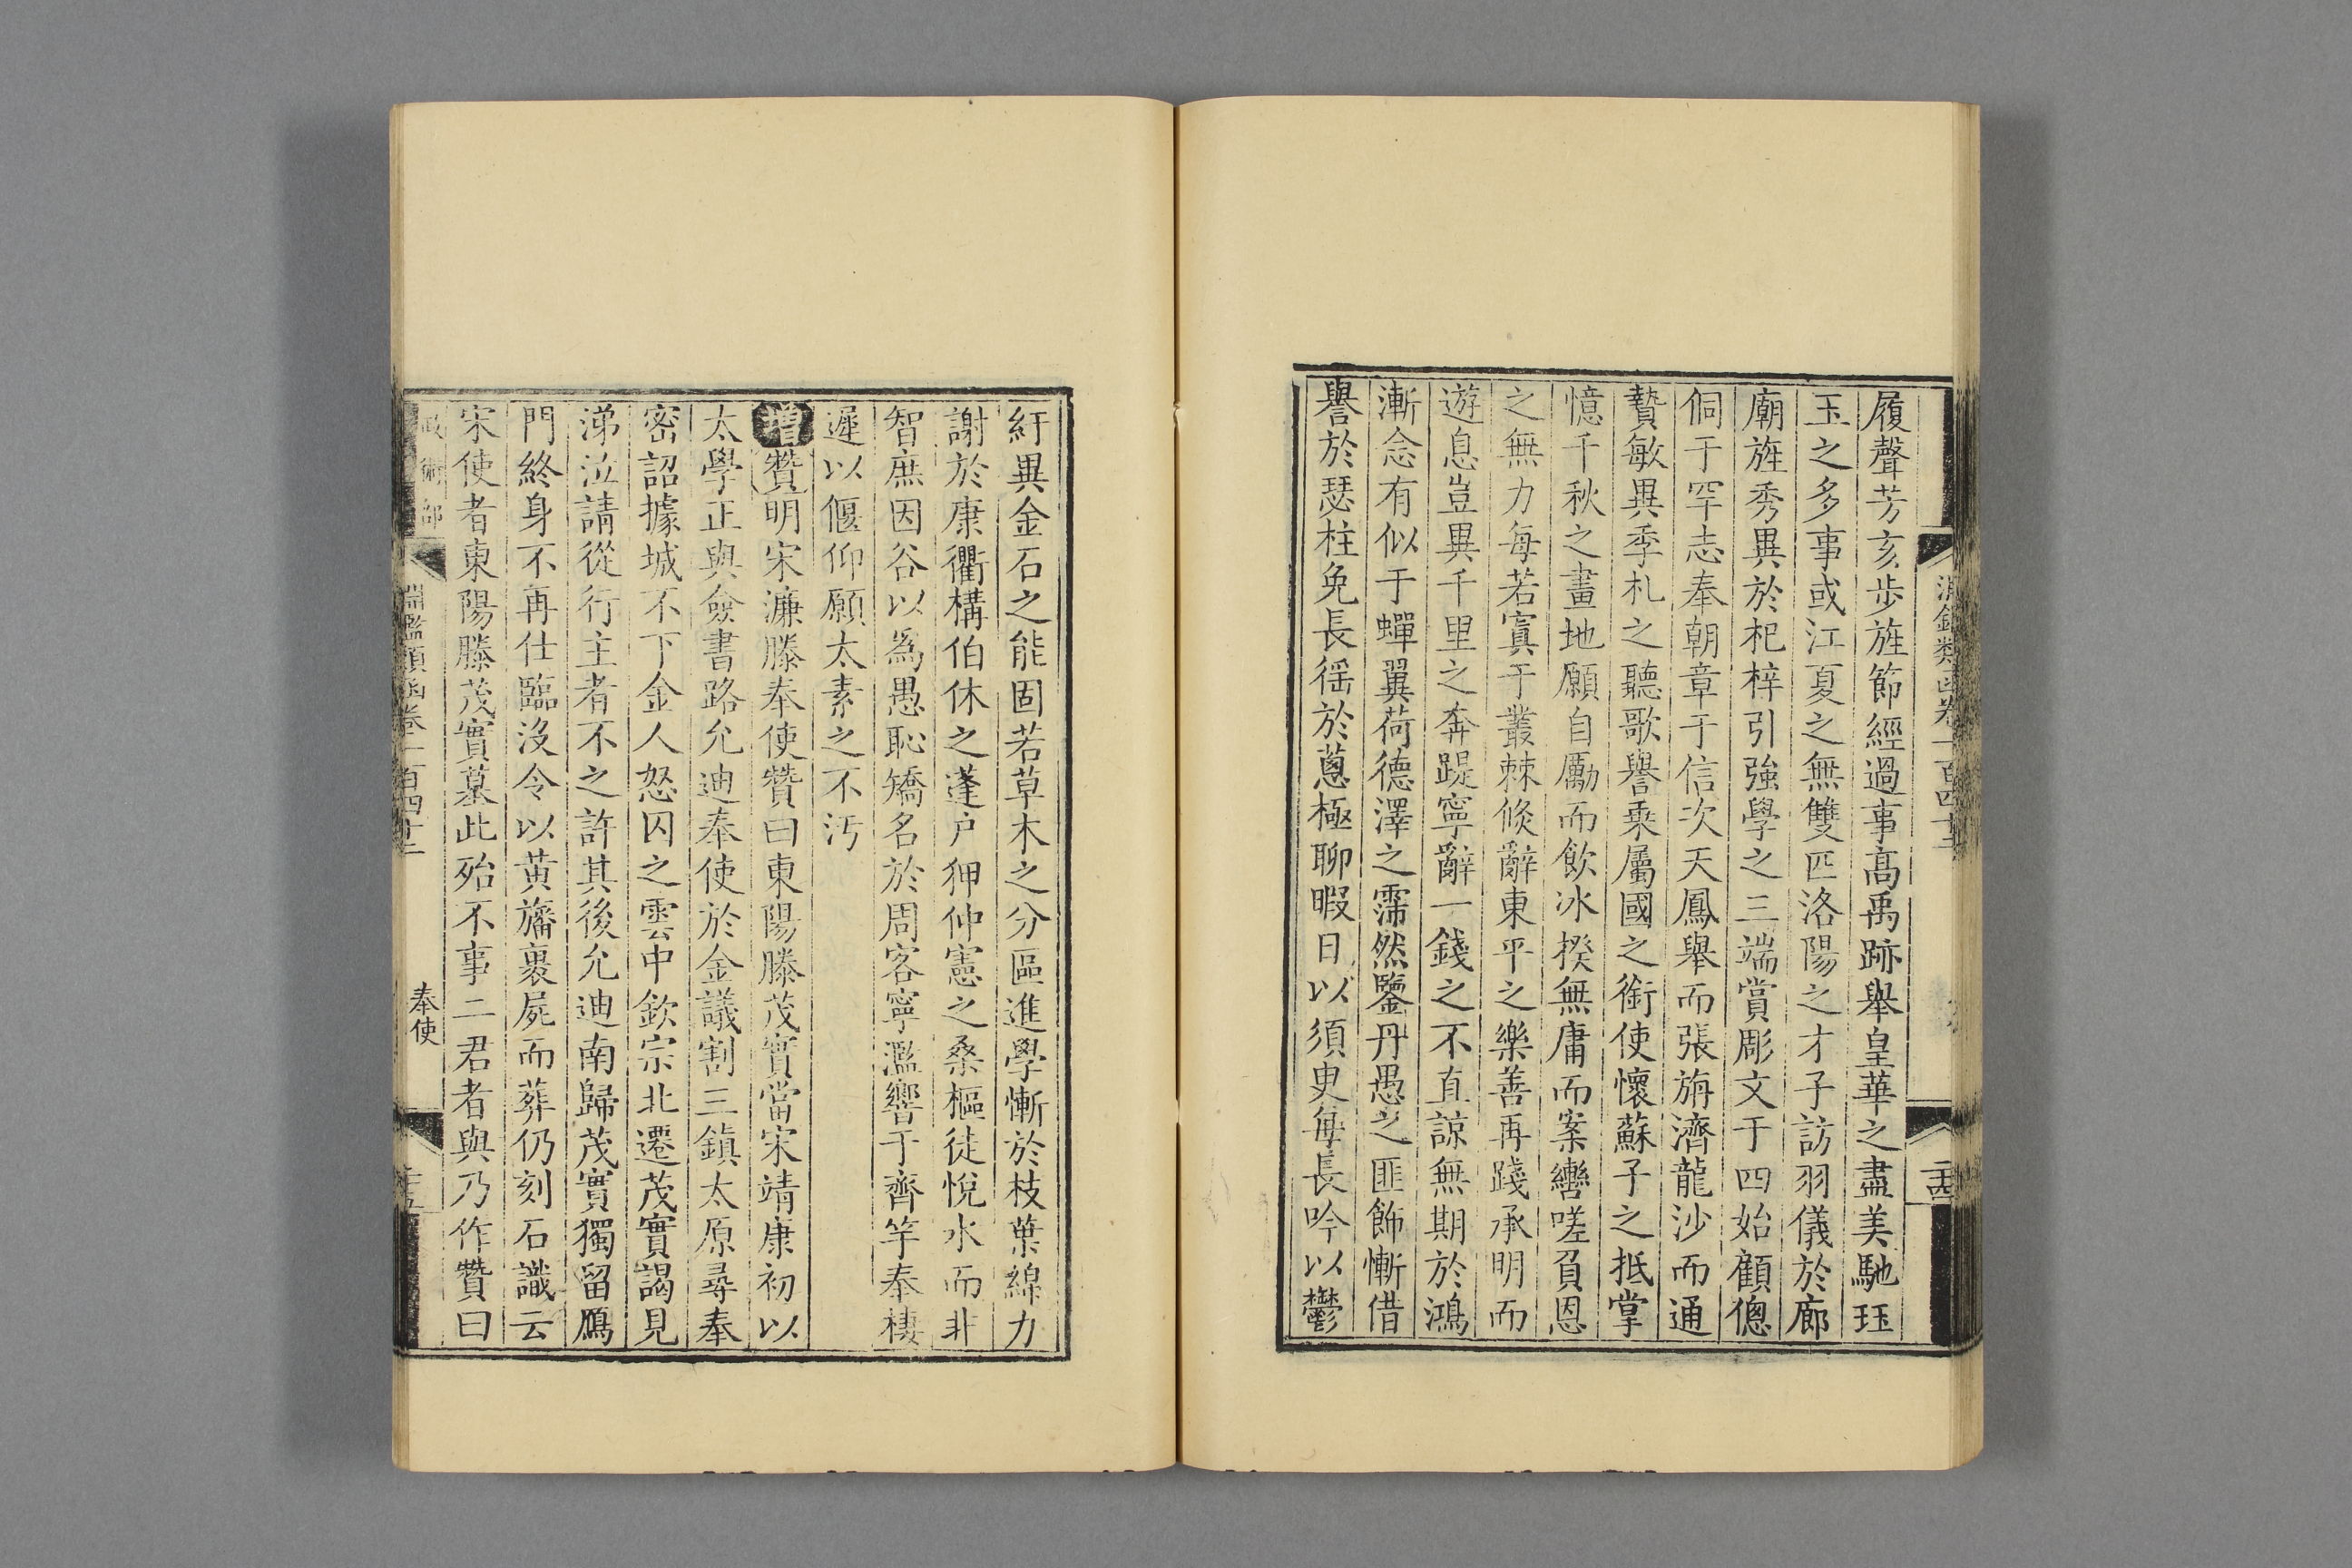 履聲芳亥步旌節經過事高禹跡舉皇華之盡美馳珏
玉之多事或江夏之無雙匹洛陽之才子訪羽儀於廊
廟旌秀異於杞梓引強學之三端賞彫文于四始顧傯
侗于罕志奉朝章于信次天鳳舉而張旃濟龍沙而通
贄敏異季札之聽歌譽乘屬國之銜使懷蘇子之抵掌
憶千秋之畫地願自勵而飲冰揆無庸而案轡嗟負恩
之無力每若寘于叢棘倐辭東平之樂善再踐承明而
遊息豈異千里之奔踶寧辭一錢之不直諒無期於鴻
漸念有似于蟬翼荷德澤之霈然鑒丹愚之匪飾慚借
譽於瑟柱免長徭於蒠極聊暇日以須臾每長吟以鬱
紆異金石之能固若草木之分區進學慚於枝葉綿力
謝於康衢構伯休之蓬户狎仲憲之桑樞徒悅水而非
智庶因谷以爲愚恥矯名於周客寧濫響于齊竽奉棲
遲以偃仰願太素之不汚
增贊明宋濂滕奉使贊曰東陽滕茂實當宋靖康初以
太學正與僉書路允迪奉使於金議割三鎮太原尋奉
密詔據城不下金人怒囚之雲中欽宗北遷茂實謁見
涕泣請從行主者不之許其後允迪南歸茂實獨留鴈
門終身不再仕臨沒令以黃旛裹屍而葬仍刻石識云
宋使者東陽滕茂實墓此殆不事二君者與乃作贊曰
淵鑑類函卷一百四十二
奉使